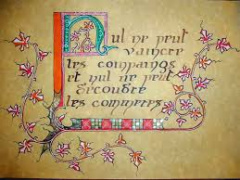 Nul ne peut
vaincre
les compaings
et nul ne peut
les commeres